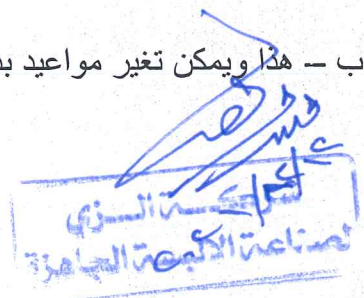 ب – هذا ويمكن تغير مواعيد بد
شركة الزي
لصناعة الألبسة الجاهزة